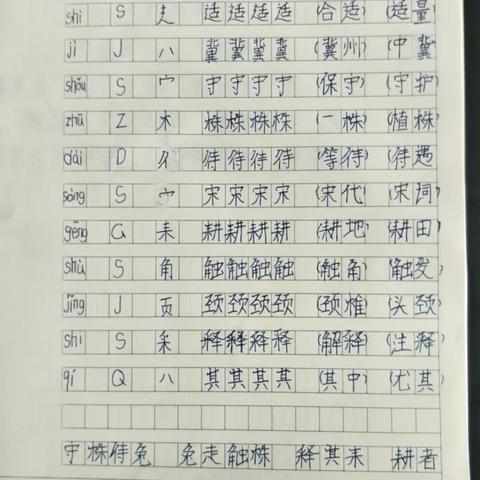 shì S 辶 适适适适 (合适) (适量
jì J 八 冀冀冀冀 (冀州) (中冀
shǒu S 宀 守守守守 (保守) (守护
zhū Z 木 株株株株 (一株) (植株
dài D 彳 待待待待 (等待) (待遇
sòng S 宀 宋宋宋宋 (宋代) (宋词
gēng G 耒 耕耕耕耕 (耕地) (耕田
shù S 角 触触触触 (触角) (触发
jǐng J 页 颈颈颈颈 (颈椎) (头颈
shì S 采 释释释释 (解释) (注释
qí Q 八 其其其其 (其中) (尤其
守株待兔 兔走触株 释其耒 耕者